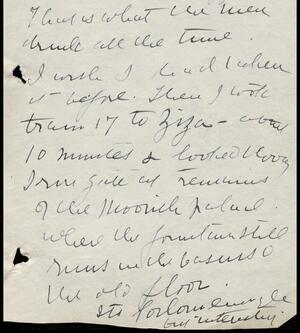 That is what the men
drink all the time.
I wish I had taken
it before. Then I took
tram 17 to Ziza - about
10 minutes & looked through
Iron gate at remains
of the Moorish palace
where the fountain still
runs in the basins &
the old floor.
Its forlorn
but interesting.